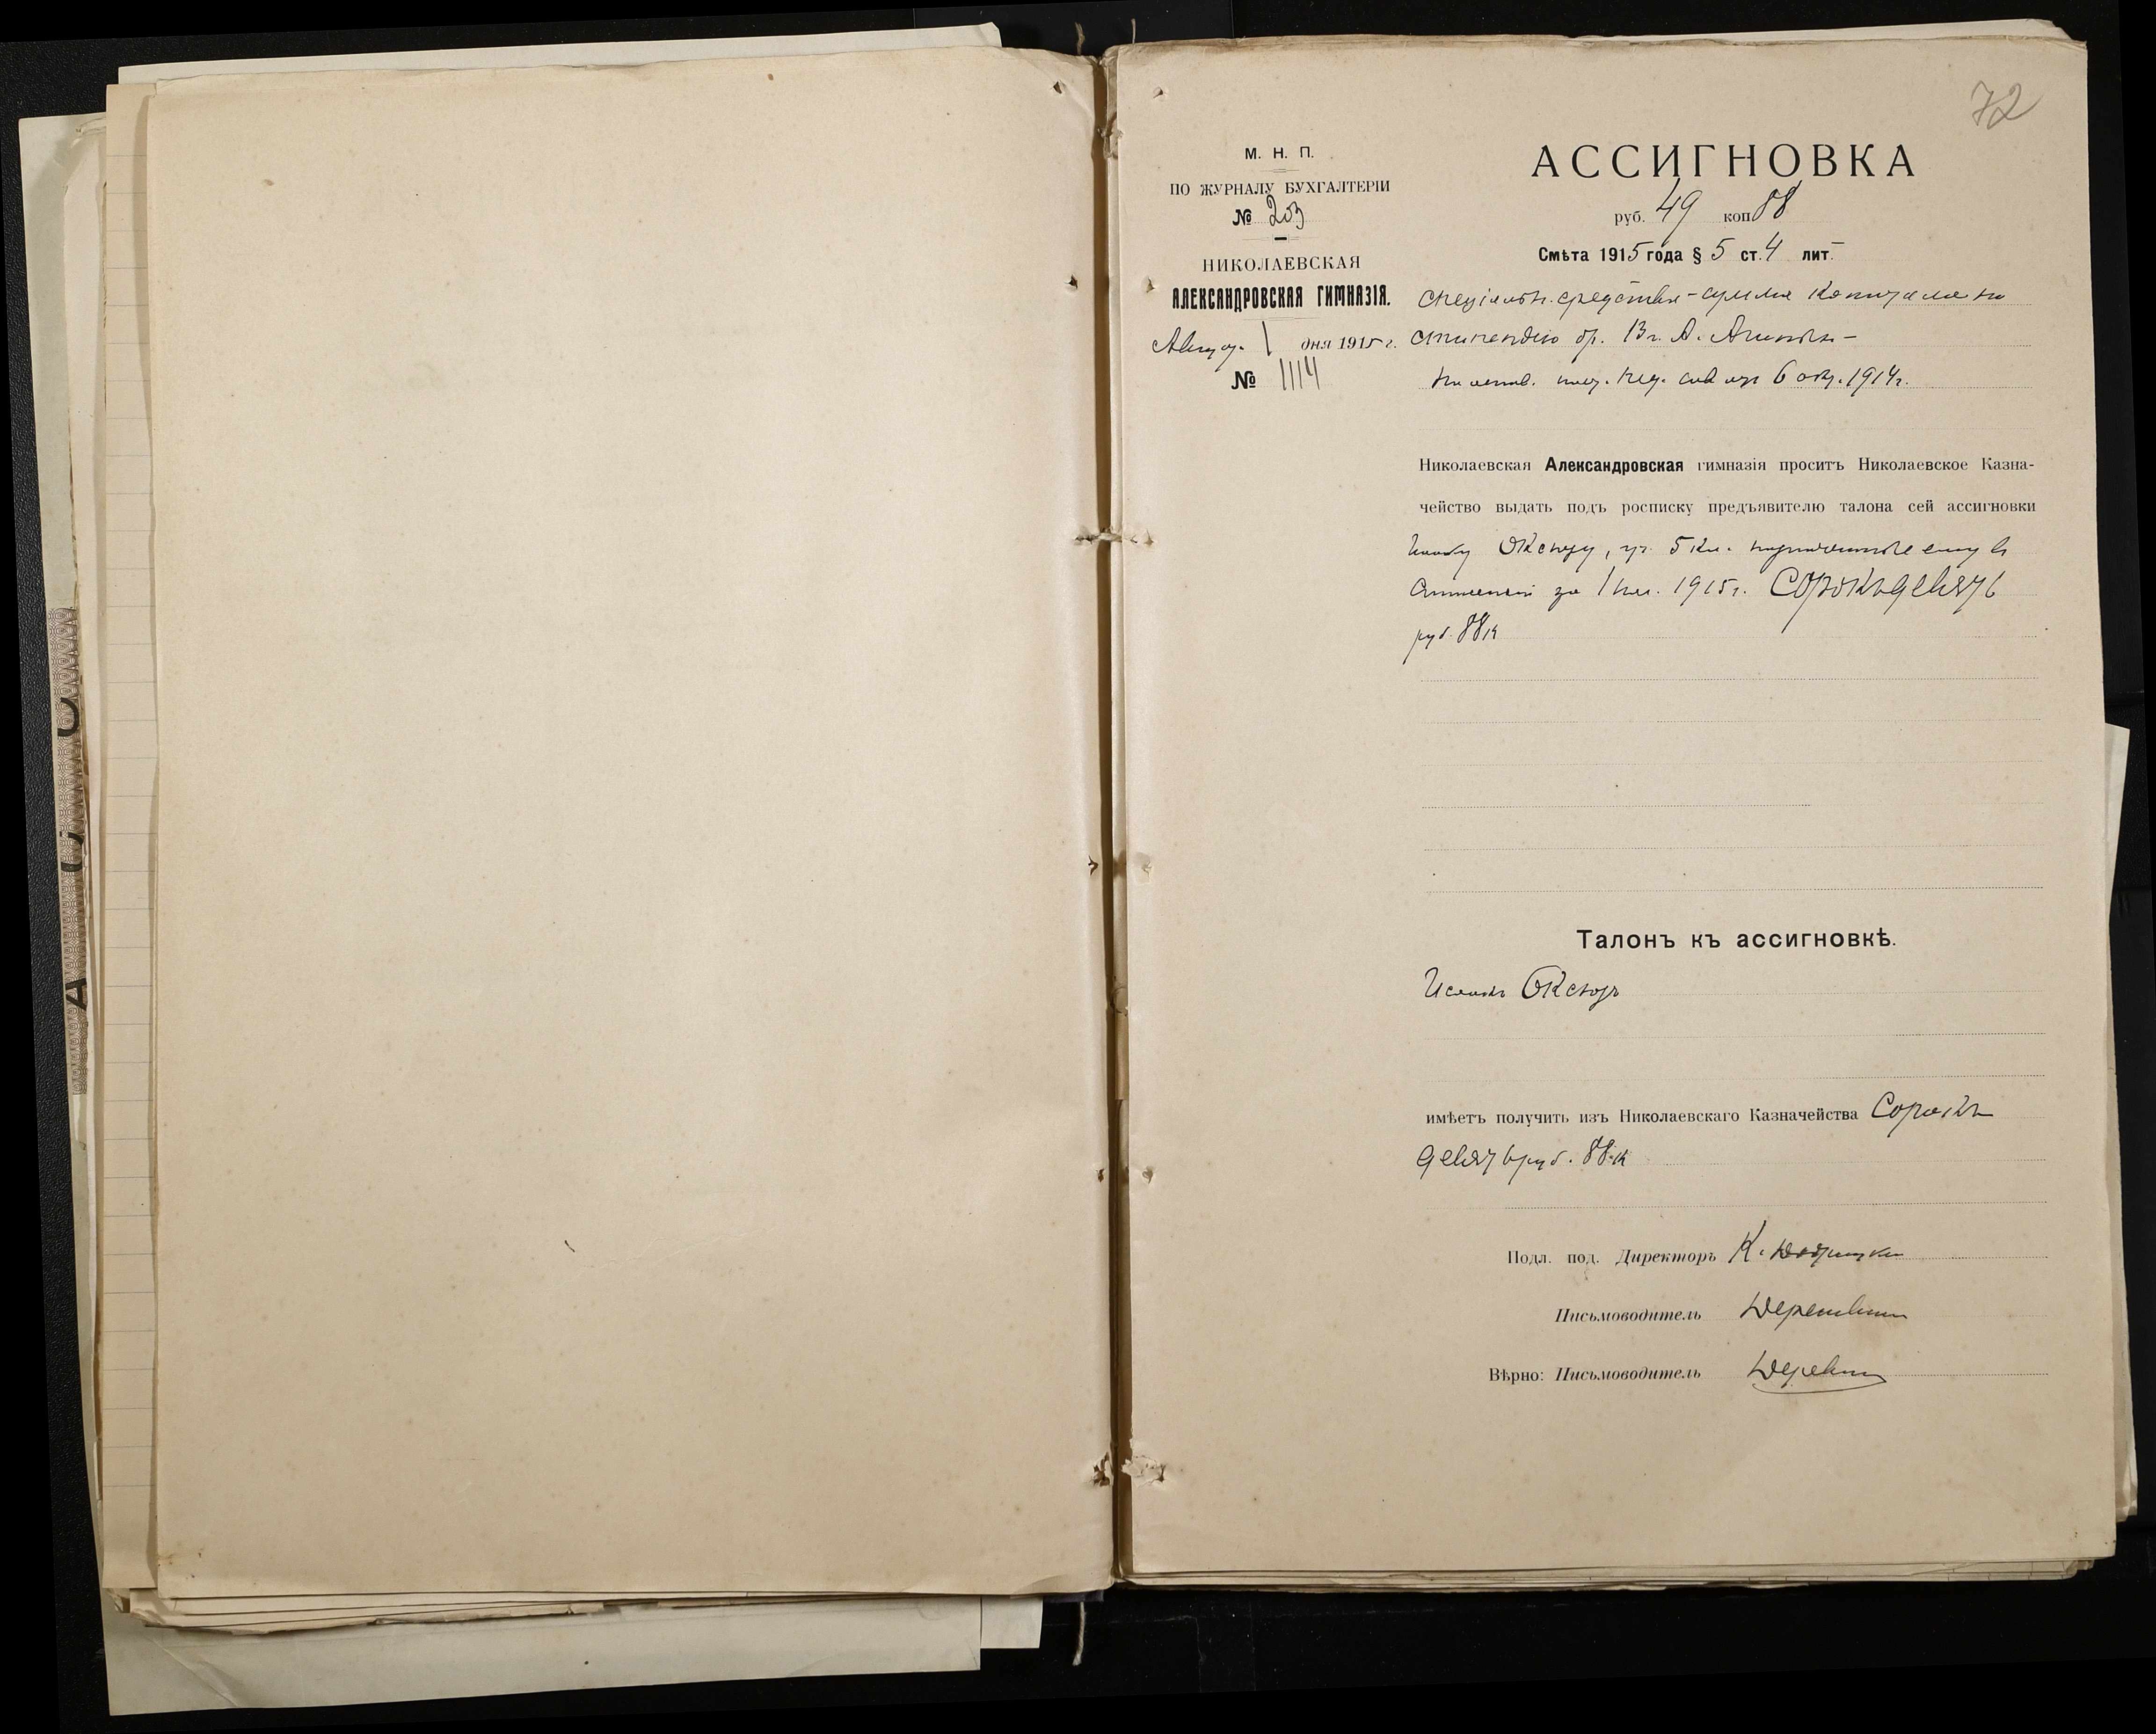 72
М. Н. П.
ПО ЖУРНАЛУ БУХГАЛТЕРІИ
№ 203
НИКОЛАЕВСКАЯ
АЛЕКСАНДРОВСКАЯ ГИМНАЗІЯ.
Август. 1 дня 1915 г.
№ 1114
АССИГНОВКА
руб. 49 коп 88
Смѣта 1915 года § 5 ст. 4 лит. –
спеціальн. средства – сумма капитала на
стипендію А.
6 окт. 1914 г.
Николаевская Александровская гимназія проситъ Николаевское Казна-
чейство выдать подъ росписку предъявителю талона сей ассигновки
5 кл. ему в
за 1 пол. 1915 г. Сорокъ девять
руб. 88 к
Талонъ къ ассигновкѣ.
Исаакъ
имѣетъ получить изъ Николаевскаго Казначейства Сорокъ
девять руб. 88 к
Подл. под. Директоръ К.
Письмоводитель
Вѣрно: Письмоводитель